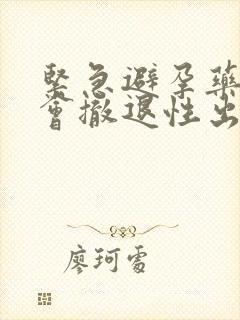 緊急避孕藥
會撤退性出
廖珂雪